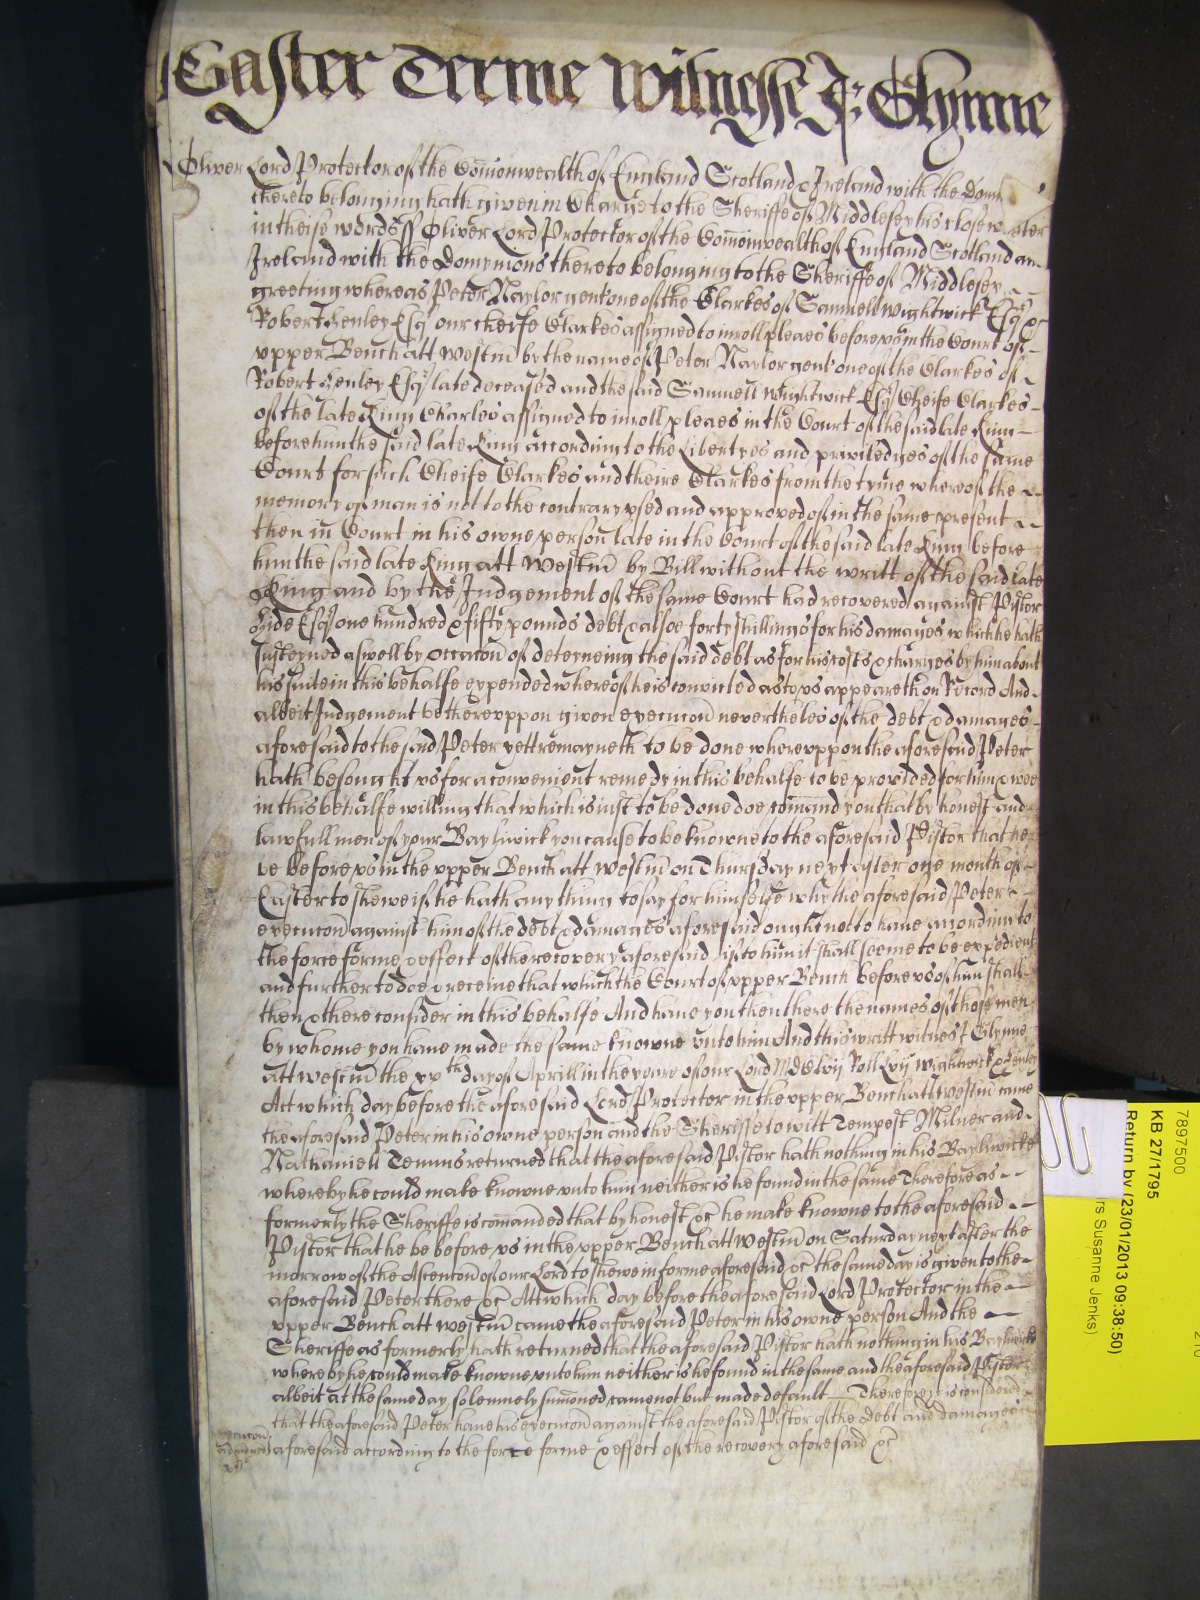 Easter Terme Witnesse J: Glynne
Oliver Lord Protector of the Com̄onwealth of England Scotland & Ireland with the Dom
thereto belonging hath given in Charge to the Sheriffe of Middlesex his close
in theise words ss Oliver Lord Protector of the Com̄onwealth of England Scotland an
Ireland with the Domynions thereto belonging to the Sheriffe of Middlesex
greeting whereas Peter Naylor gent one of the Clarkes of Samuell Wightwick Esq &
Robert Henley Esq our cheife Clarkes assigned to inroll pleaes before us in the Court of
vpper Bench att Westm̄ by the name of Peter Naylor gent one of the Clarkes of
Robert Henley Esq late deceased and the said Samuell Wightwick Esq Cheife Clarkes
of the late King Charles assigned to inroll pleaes in the Court of the said late King
before him the said late King according to the Libertyes and priviledges of the same
Court for such Cheife Clarkes and theire Clarkes from the tyme whereof the
memory of man is not to the contrary vsed and approved of in the same present
then in Court in his owne person late in the Court of the said late King before
him the said late King att Westm̄ by Bill without the writt of the said late
King and by the Judgement of the same Court had recovered against Pistor
Hide Esq one hundred & fifty pounds debt & alsoe forty shillings for his damages which he hath
susteyned aswell by occacōn of deteyneing the said debt as for his costs & charges by him about
his suite in this behalfe expended whereof he is convicted as to vs appeareth on Record And
albeit Judgement be therevppon given execucōn nevertheles of the debt & damages
aforesaid to the said Peter yett remayneth to be done wherevppon the aforesaid Peter
hath besought vs for a convenient remedy in this behalfe to be provided for him & wee
in this behalfe willing that which is iust to be done doe com̄and you that by honest and
lawfull men of your Baylywick you cause to be knowne to the aforesaid Pistor that he
be before vs in the vpper Bench att Westm̄ on Thursday next after one month of
Easter to shewe if he hath any thing to say for himselfe why the aforesaid Peter
execucōn against him of the debt & damages aforesaid ought not to have according to
the force forme & effect of the recovery aforesaid if to him it shall seeme to be expedient
and further to doe & receive that which the Court of vpper Bench before vs of him shall
then & there consider in this behalfe And have you then there the names of those men
by whome you have made the same knowne vnto him And this writt witnes J Glynne
att Westm̄ the xxth day of Aprill in the yeare of our Lord MDClvij Roll Lvij Wightwick & Henley
Att which day before the aforesaid Lord Protector in the vpper Bench att Westm̄ came
the aforesaid Peter in his owne person and the Sheriffe to witt Tempest Milner and
Nathaniell Temms returned that the aforesaid Pistor hath nothing in his Baylywicke
whereby he could make knowne vnto him neither is he found in the same Therefore as
formerly the Sheriffe is com̄anded that by honest &c he make knowne to the aforesaid
Pistor that he be before vs in the vpper Bench att Westm̄ on Saturday next after the
morrow of the Ascencōn of our Lord to shewe in forme aforesaid &c the same day is given to the
aforesaid Peter there &c Att which day before the aforesaid Lord Protector in the
vpper Bench att Westm̄ came the aforesaid Peter in his owne person And the
Sheriffe as formerly hath returned that the aforesaid Pistor hath nothing in his Baylywicke
whereby he could make knowne vnto him neither is he found in the same and the aforesaid Pistor
albeit at the same day solemnely sum̄oned came not but made default Therefore it is considered
that the aforesaid Peter have his execucōn against the aforesaid Pistor of the debt and damages
aforesaid according to the force forme & effect of the recovery aforesaid &c
7897500
KB 27/1795
Return by (23/01/2013 09:38:50)
rs Susanne Jenks)